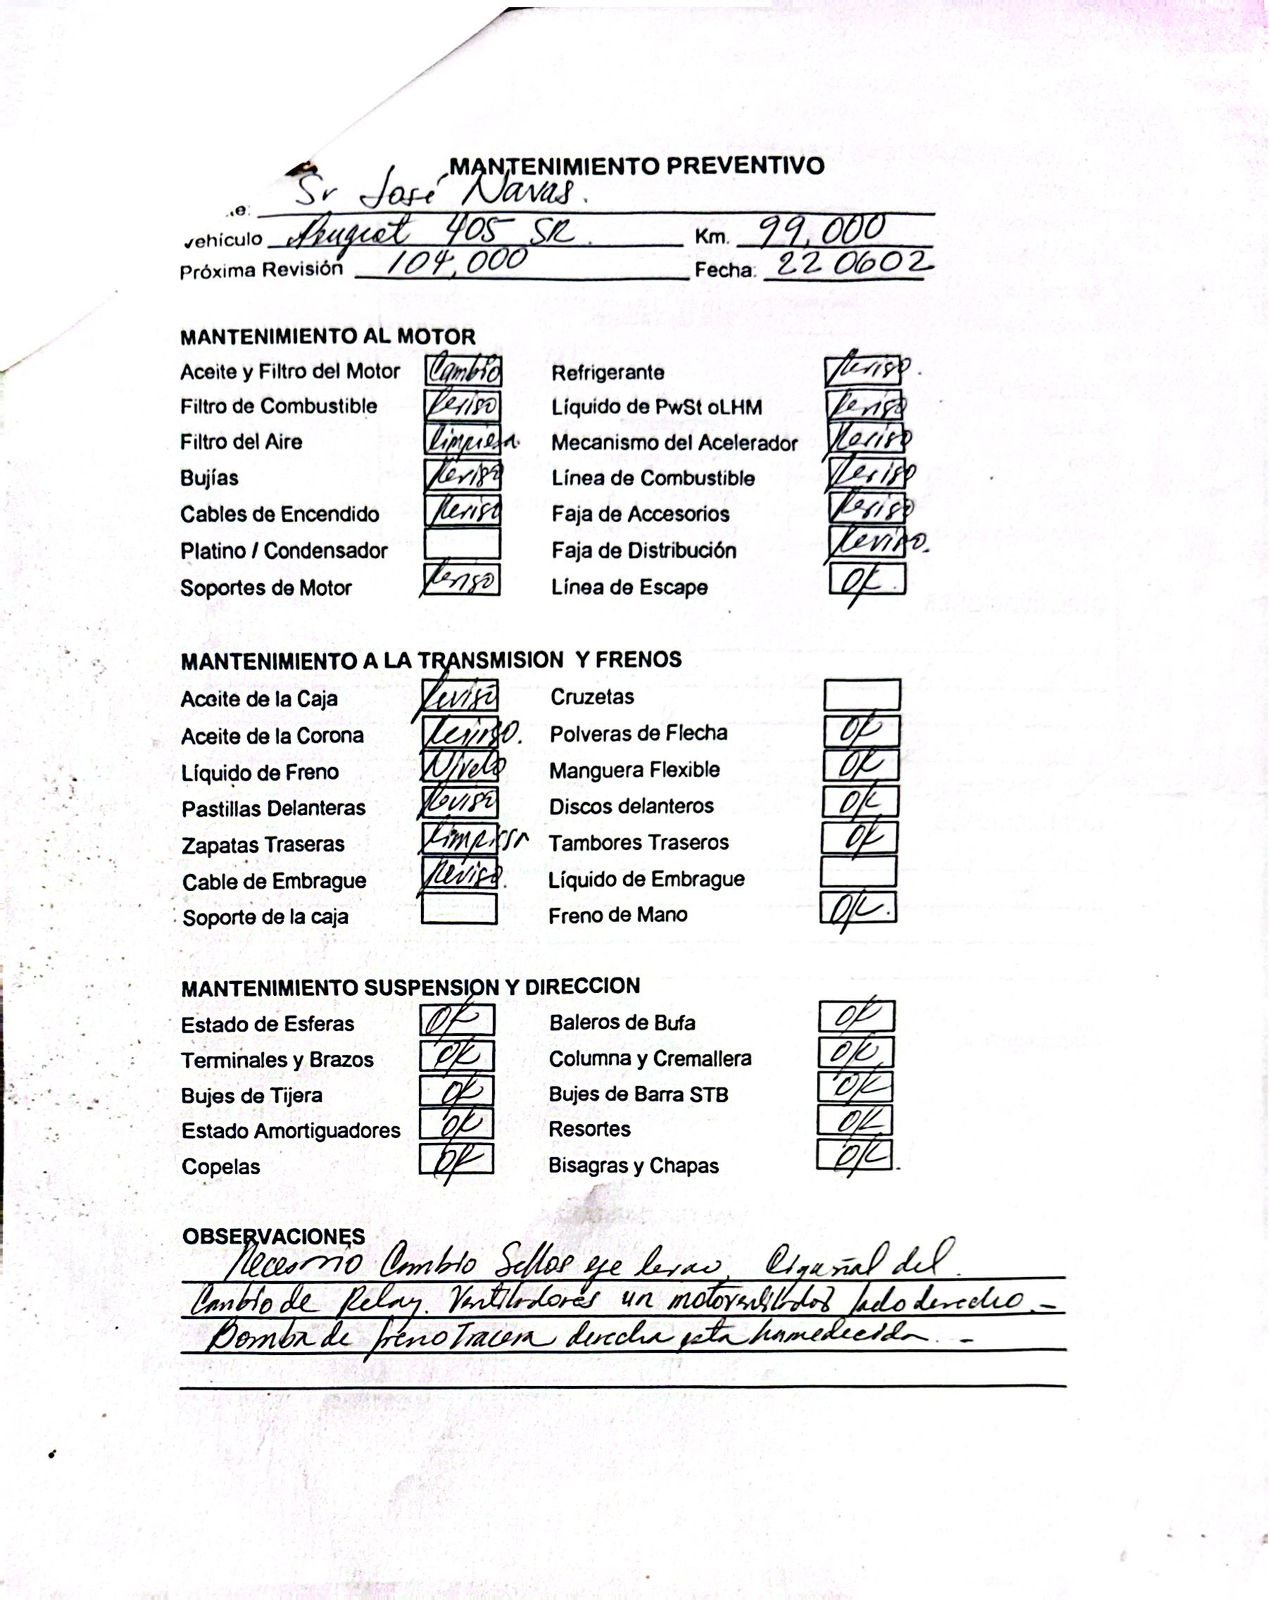 MANTENIMIENTO PREVENTIVO
e: Sr José Navas.
vehículo Peugeot 405 SR. Km. 99,000
Próxima Revisión 104,000 Fecha: 220602
MANTENIMIENTO AL MOTOR
Aceite y Filtro del Motor Cambio Refrigerante Reviso.
Filtro de Combustible Reviso Líquido de PwSt oLHM Reviso
Filtro del Aire Limpiesa. Mecanismo del Acelerador Reviso
Bujías Reviso Línea de Combustible Reviso
Cables de Encendido Reviso Faja de Accesorios Reviso
Platino / Condensador Faja de Distribución Reviso.
Soportes de Motor Reviso Línea de Escape OK.
MANTENIMIENTO A LA TRANSMISION Y FRENOS
Aceite de la Caja Reviso Cruzetas
Aceite de la Corona Reviso. Polveras de Flecha OK
Líquido de Freno Nivelo Manguera Flexible OK
Pastillas Delanteras Reviso Discos delanteros OK
Zapatas Traseras Limpiesa Tambores Traseros OK
Cable de Embrague Reviso. Líquido de Embrague
Soporte de la caja Freno de Mano OK.
MANTENIMIENTO SUSPENSION Y DIRECCION
Estado de Esferas OK Baleros de Bufa OK
Terminales y Brazos OK Columna y Cremallera OK
Bujes de Tijera OK Bujes de Barra STB OK
Estado Amortiguadores OK Resortes OK
Copelas OK Bisagras y Chapas OK.
OBSERVACIONES
Necesario Cambio Sellos eje Cigueñal del.
Cambio de Relay. Ventiladores un motoventilador lado derecho. -
Bomba de freno Tracera derecha esta humedecida. -